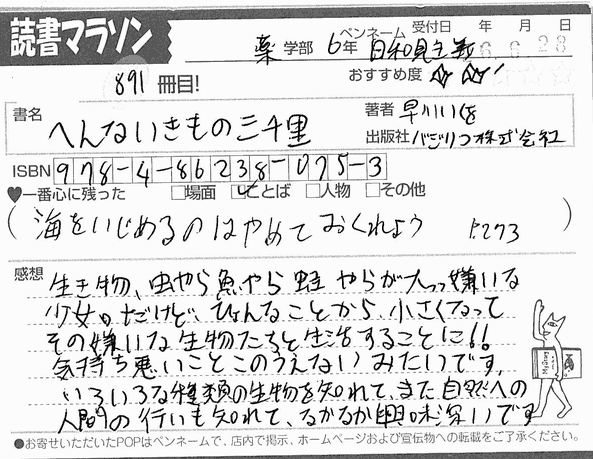 読書マラソン
ペンネーム 受付日 年 月 日
薬 学部 6年 日和見主義 6 6 28
891 冊目! おすすめ度 ☆ ☆☆!
書名 へんないきもの三千里
著者 早川いくを
出版社 バジリコ株式会社
ISBN 978-4-86238-075-3
♥一番心に残った □場面 ☑ことば □人物 □その他
(海をいじめるのはやめておくれよう P.273)
感想 生き物、虫やら魚やら蛙やらが大っっ嫌いな
少女。だけど、ひょんなことから、小さくなって
その嫌いな生物たちと生活することに!!
気持ち悪いことこのうえないみたいです。
いろいろな種類の生物を知れて、また自然への
人間の行いも知れて、なかなか興味深いです
●お寄せいただいたPOPはペンネームで、店内で掲示、ホームページおよび宣伝物への転載をご了承ください。